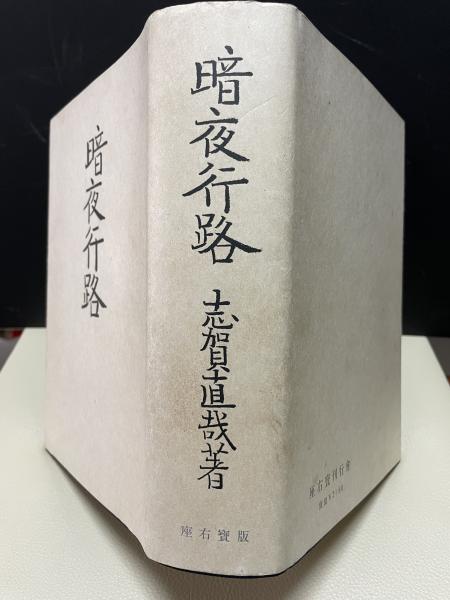 暗夜行路
暗夜行路
志賀直哉著
座右寳版
座右寳刊行會